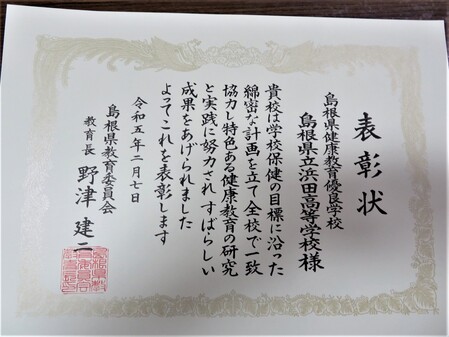 表彰状
島根県健康教育優良学校
島根県立浜田高等学校様
貴校は学校保健の目標に沿った
綿密な計画を立て全校で一致
協力し特色ある健康教育の研究
と実践に努力されすばらしい
成果をあげられました
よってこれを表彰します
令和五年二月七日
島根県教育委員会
教育長 野津建二